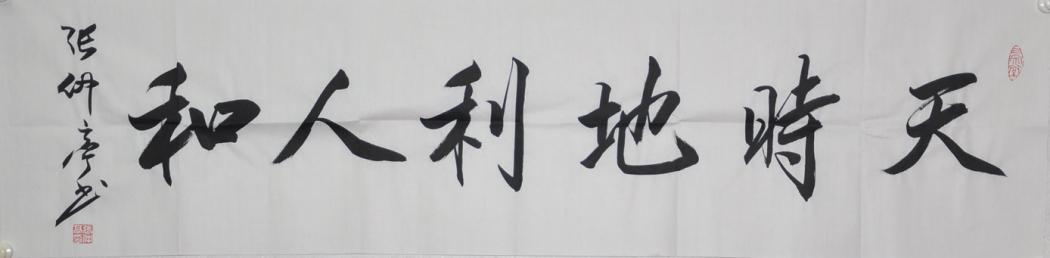 天時地利人和
张仲亭书